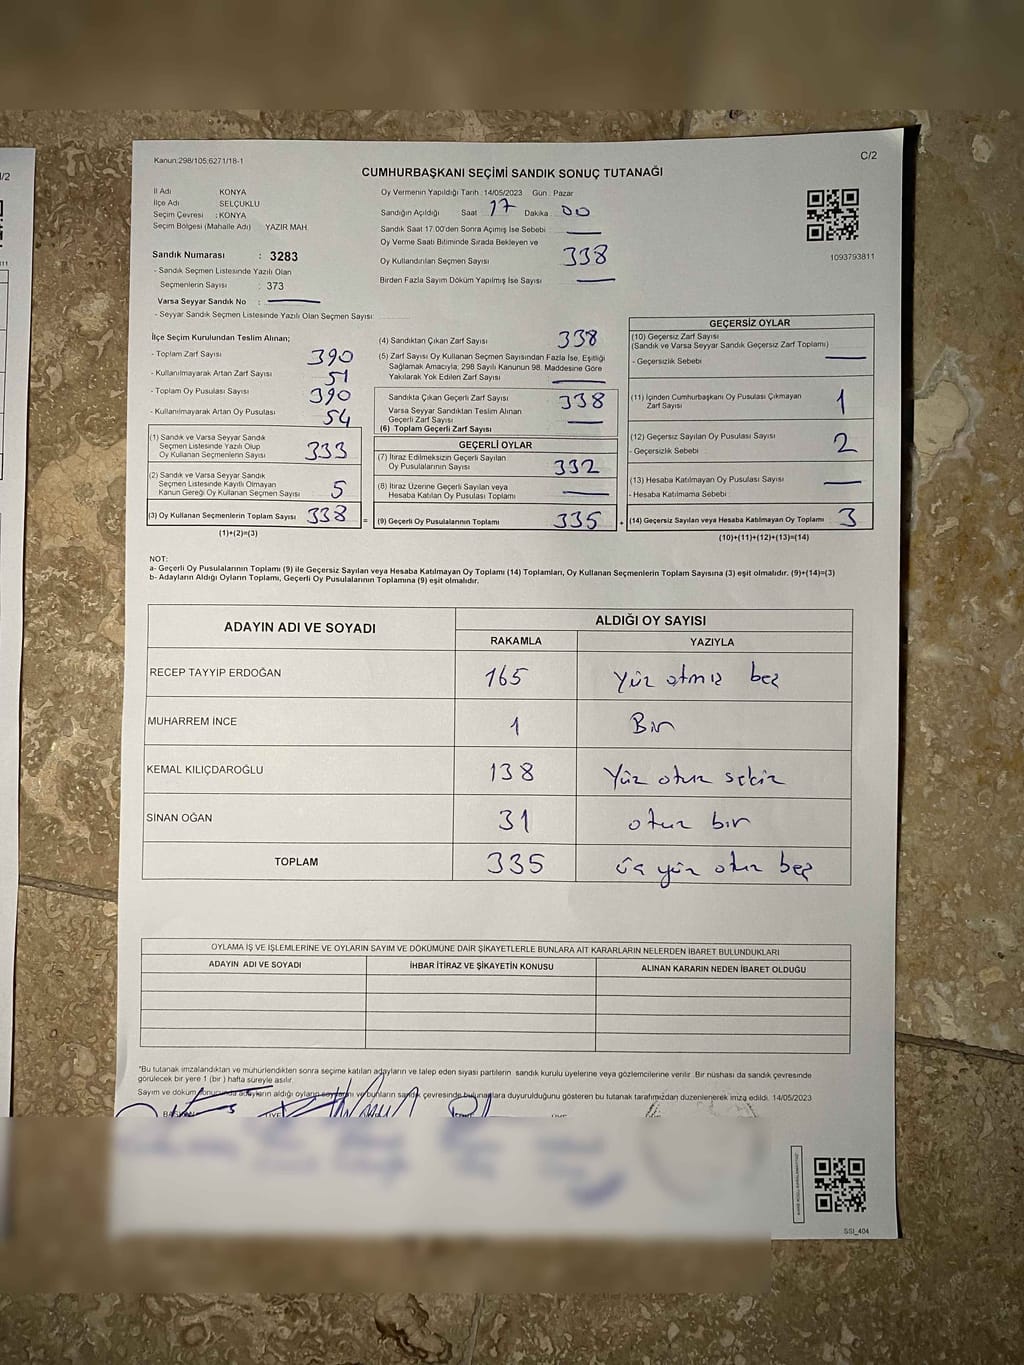 Kanun:298/105;6271/18-1
C/2
CUMHURBAŞKANI SEÇİMİ SANDIK SONUÇ TUTANAĞI
İl Adı KONYA
İlçe Adı SELÇUKLU
Seçim Çevresi : KONYA
Seçim Bölgesi (Mahalle Adı) YAZIR MAH
Sandık Numarası : 3283
- Sandık Seçmen Listesinde Yazılı Olan
Seçmenlerin Sayısı : 373
Varsa Seyyar Sandık No :
- Seyyar Sandık Seçmen Listesinde Yazılı Olan Seçmen Sayısı:
Oy Vermenin Yapıldığı Tarih :14/05/2023 Gün : Pazar
Sandığın Açıldığı Saat 17 Dakika 00
Sandık Saat 17.00'den Sonra Açımış İse Sebebi
Oy Verme Saati Bitiminde Sırada Bekleyen ve
Oy Kullandırılan Seçmen Sayısı 338
Birden Fazla Sayım Döküm Yapılmış İse Sayısı
1093793811
İlçe Seçim Kurulundan Teslim Alınan;
- Toplam Zarf Sayısı 390
- Kullanılmayarak Artan Zarf Sayısı 51
- Toplam Oy Pusulası Sayısı 390
- Kullanılmayarak Artan Oy Pusulası 54
(1) Sandık ve Varsa Seyyar Sandık
Seçmen Listesinde Yazılı Olup
Oy Kullanan Seçmenlerin Sayısı 333
(2) Sandık ve Varsa Seyyar Sandık
Seçmen Listesinde Kayıtlı Olmayan
Kanun Gereği Oy Kullanan Seçmen Sayısı 5
(3) Oy Kullanan Seçmenlerin Toplam Sayısı 338
(1)+(2)=(3)
(4) Sandıktan Çıkan Zarf Sayısı 338
(5) Zarf Sayısı Oy Kullanan Seçmen Sayısından Fazla İse, Eşitliği
Sağlamak Amacıyla; 298 Sayılı Kanunun 98. Maddesine Göre
Yakılarak Yok Edilen Zarf Sayısı
Sandıkta Çıkan Geçerli Zarf Sayısı 338
Varsa Seyyar Sandıktan Teslim Alınan
Geçerli Zarf Sayısı
(6) Toplam Geçerli Zarf Sayısı
GEÇERLİ OYLAR
(7) İtiraz Edilmeksizin Geçerli Sayılan
Oy Pusulalarının Sayısı 332
(8) İtiraz Üzerine Geçerli Sayılan veya
Hesaba Katılan Oy Pusulası Toplamı
= (9) Geçerli Oy Pusulalarının Toplamı 335 +
GEÇERSİZ OYLAR
(10) Geçersiz Zarf Sayısı
(Sandık ve Varsa Seyyar Sandık Geçersiz Zarf Toplamı)
- Geçersizlik Sebebi
(11) İçinden Cumhurbaşkanı Oy Pusulası Çıkmayan
Zarf Sayısı 1
(12) Geçersiz Sayılan Oy Pusulası Sayısı 2
- Geçersizlik Sebebi
(13) Hesaba Katılmayan Oy Pusulası Sayısı
- Hesaba Katılmama Sebebi
(14) Geçersiz Sayılan veya Hesaba Katılmayan Oy Toplamı 3
(10)+(11)+(12)+(13)=(14)
NOT:
a- Geçerli Oy Pusulalarının Toplamı (9) ile Geçersiz Sayılan veya Hesaba Katılmayan Oy Toplamı (14) Toplamları, Oy Kullanan Seçmenlerin Toplam Sayısına (3) eşit olmalıdır. (9)+(14)=(3)
b- Adayların Aldığı Oyların Toplamı, Geçerli Oy Pusulalarının Toplamına (9) eşit olmalıdır.
ADAYIN ADI VE SOYADI
ALDIĞI OY SAYISI
RAKAMLA YAZIYLA
RECEP TAYYIP ERDOĞAN 165 Yüz atmış beş
MUHARREM İNCE 1 Bir
KEMAL KILIÇDAROĞLU 138 Yüz otuz sekiz
SİNAN OĞAN 31 otuz bir
TOPLAM 335 üç yüz otuz beş
OYLAMA İŞ VE İŞLEMLERİNE VE OYLARIN SAYIM VE DÖKÜMÜNE DAİR ŞİKAYETLERLE BUNLARA AİT KARARLARIN NELERDEN İBARET BULUNDUKLARI
ADAYIN ADI VE SOYADI İHBAR İTİRAZ VE ŞİKAYETİN KONUSU ALINAN KARARIN NEDEN İBARET OLDUĞU
"Bu tutanak imzalandıktan ve mühürlendikten sonra seçime katılan adayların ve talep eden siyasi partilerin sandık kurulu üyelerine veya gözlemcilerine verilir. Bir nüshası da sandık çevresinde
görülecek bir yere 1 (bir) hafta süreyle asılır.
Sayım ve döküm sonucunda adayların aldığı oyların sayılarını ve bunların sandık çevresinde bulunanlara duyurulduğunu gösteren bu tutanak tarafımızdan düzenlenerek imza edildi. 14/05/2023
SSI_404